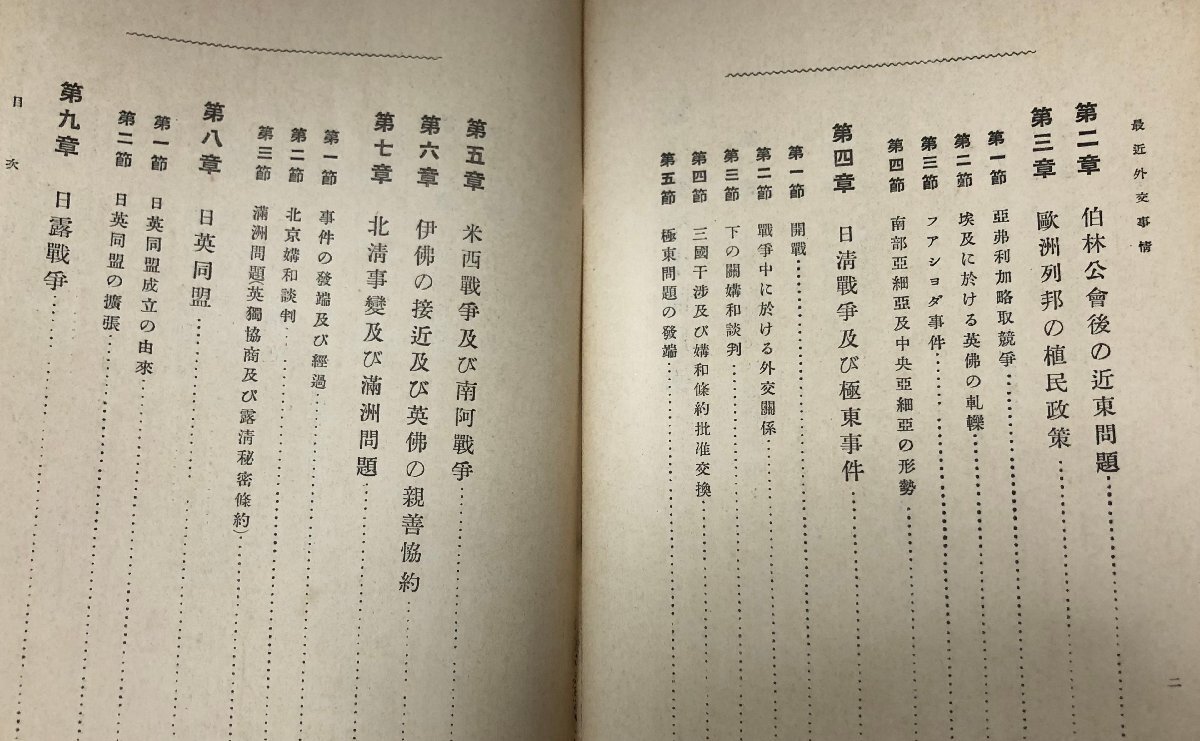 最近外交事情
第二章 伯林公會後の近東問題
第三章 歐洲列邦の植民政策
第一節 亞弗利加略取競爭
第二節 埃及に於ける英佛の軋轢
第三節 フアシヨダ事件
第四節 南部亞細亞及中央亞細亞の形勢
第四章 日淸戰爭及び極東事件
第一節 開戰
第二節 戰爭中に於ける外交關係
第三節 下の關媾和談判
第四節 三國干涉及び媾和條約批准交換
第五節 極東問題の發端
二
第五章 米西戰爭及び南阿戰爭
第六章 伊佛の接近及び英佛の親善協約
第七章 北淸事變及び滿洲問題
第一節 事件の發端及び經過
第二節 北京媾和談判
第三節 滿洲問題(英獨協商及び露淸秘密條約)
第八章 日英同盟
第一節 日英同盟成立の由來
第二節 日英同盟の擴張
第九章 日露戰爭
目次